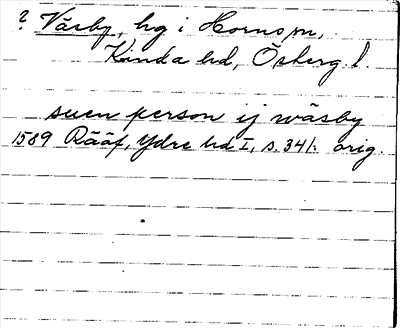 ? Väsby, hg i Horns sn,
Kinda hd, Ösberg. l.
suen person ij wäsby
1589 Rääf, Ydre hd I, s. 341. orig.